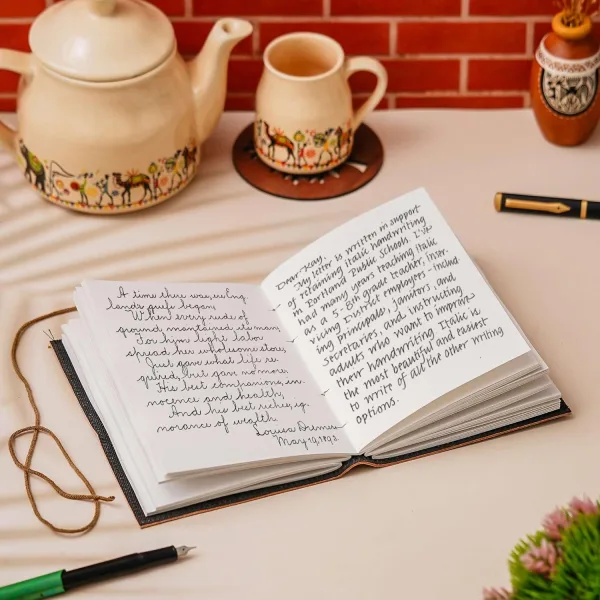 A time there was, ere Eng-
lands griefs began,
When every rude of
ground maintained its man,
For him light labor
spread her wholesome store,
Just gave what life re-
quired, but gave no more,
His best companions, in-
nocence and health,
And his best riches, ig-
norance of wealth.
Louisa
May 19, 1892
Dear Kay,
My letter is written in support
of retaining italic handwriting
in Portland Public Schools. I've
had many years teaching Italic
as a 5-8th grade teacher, inser-
vicing District employers - includ
ing principals, janitors, and
secretaries, and instructing
adults who want to improve
their handwriting. Italic is
the most beautiful and easiest
to write of all the other writing
options.